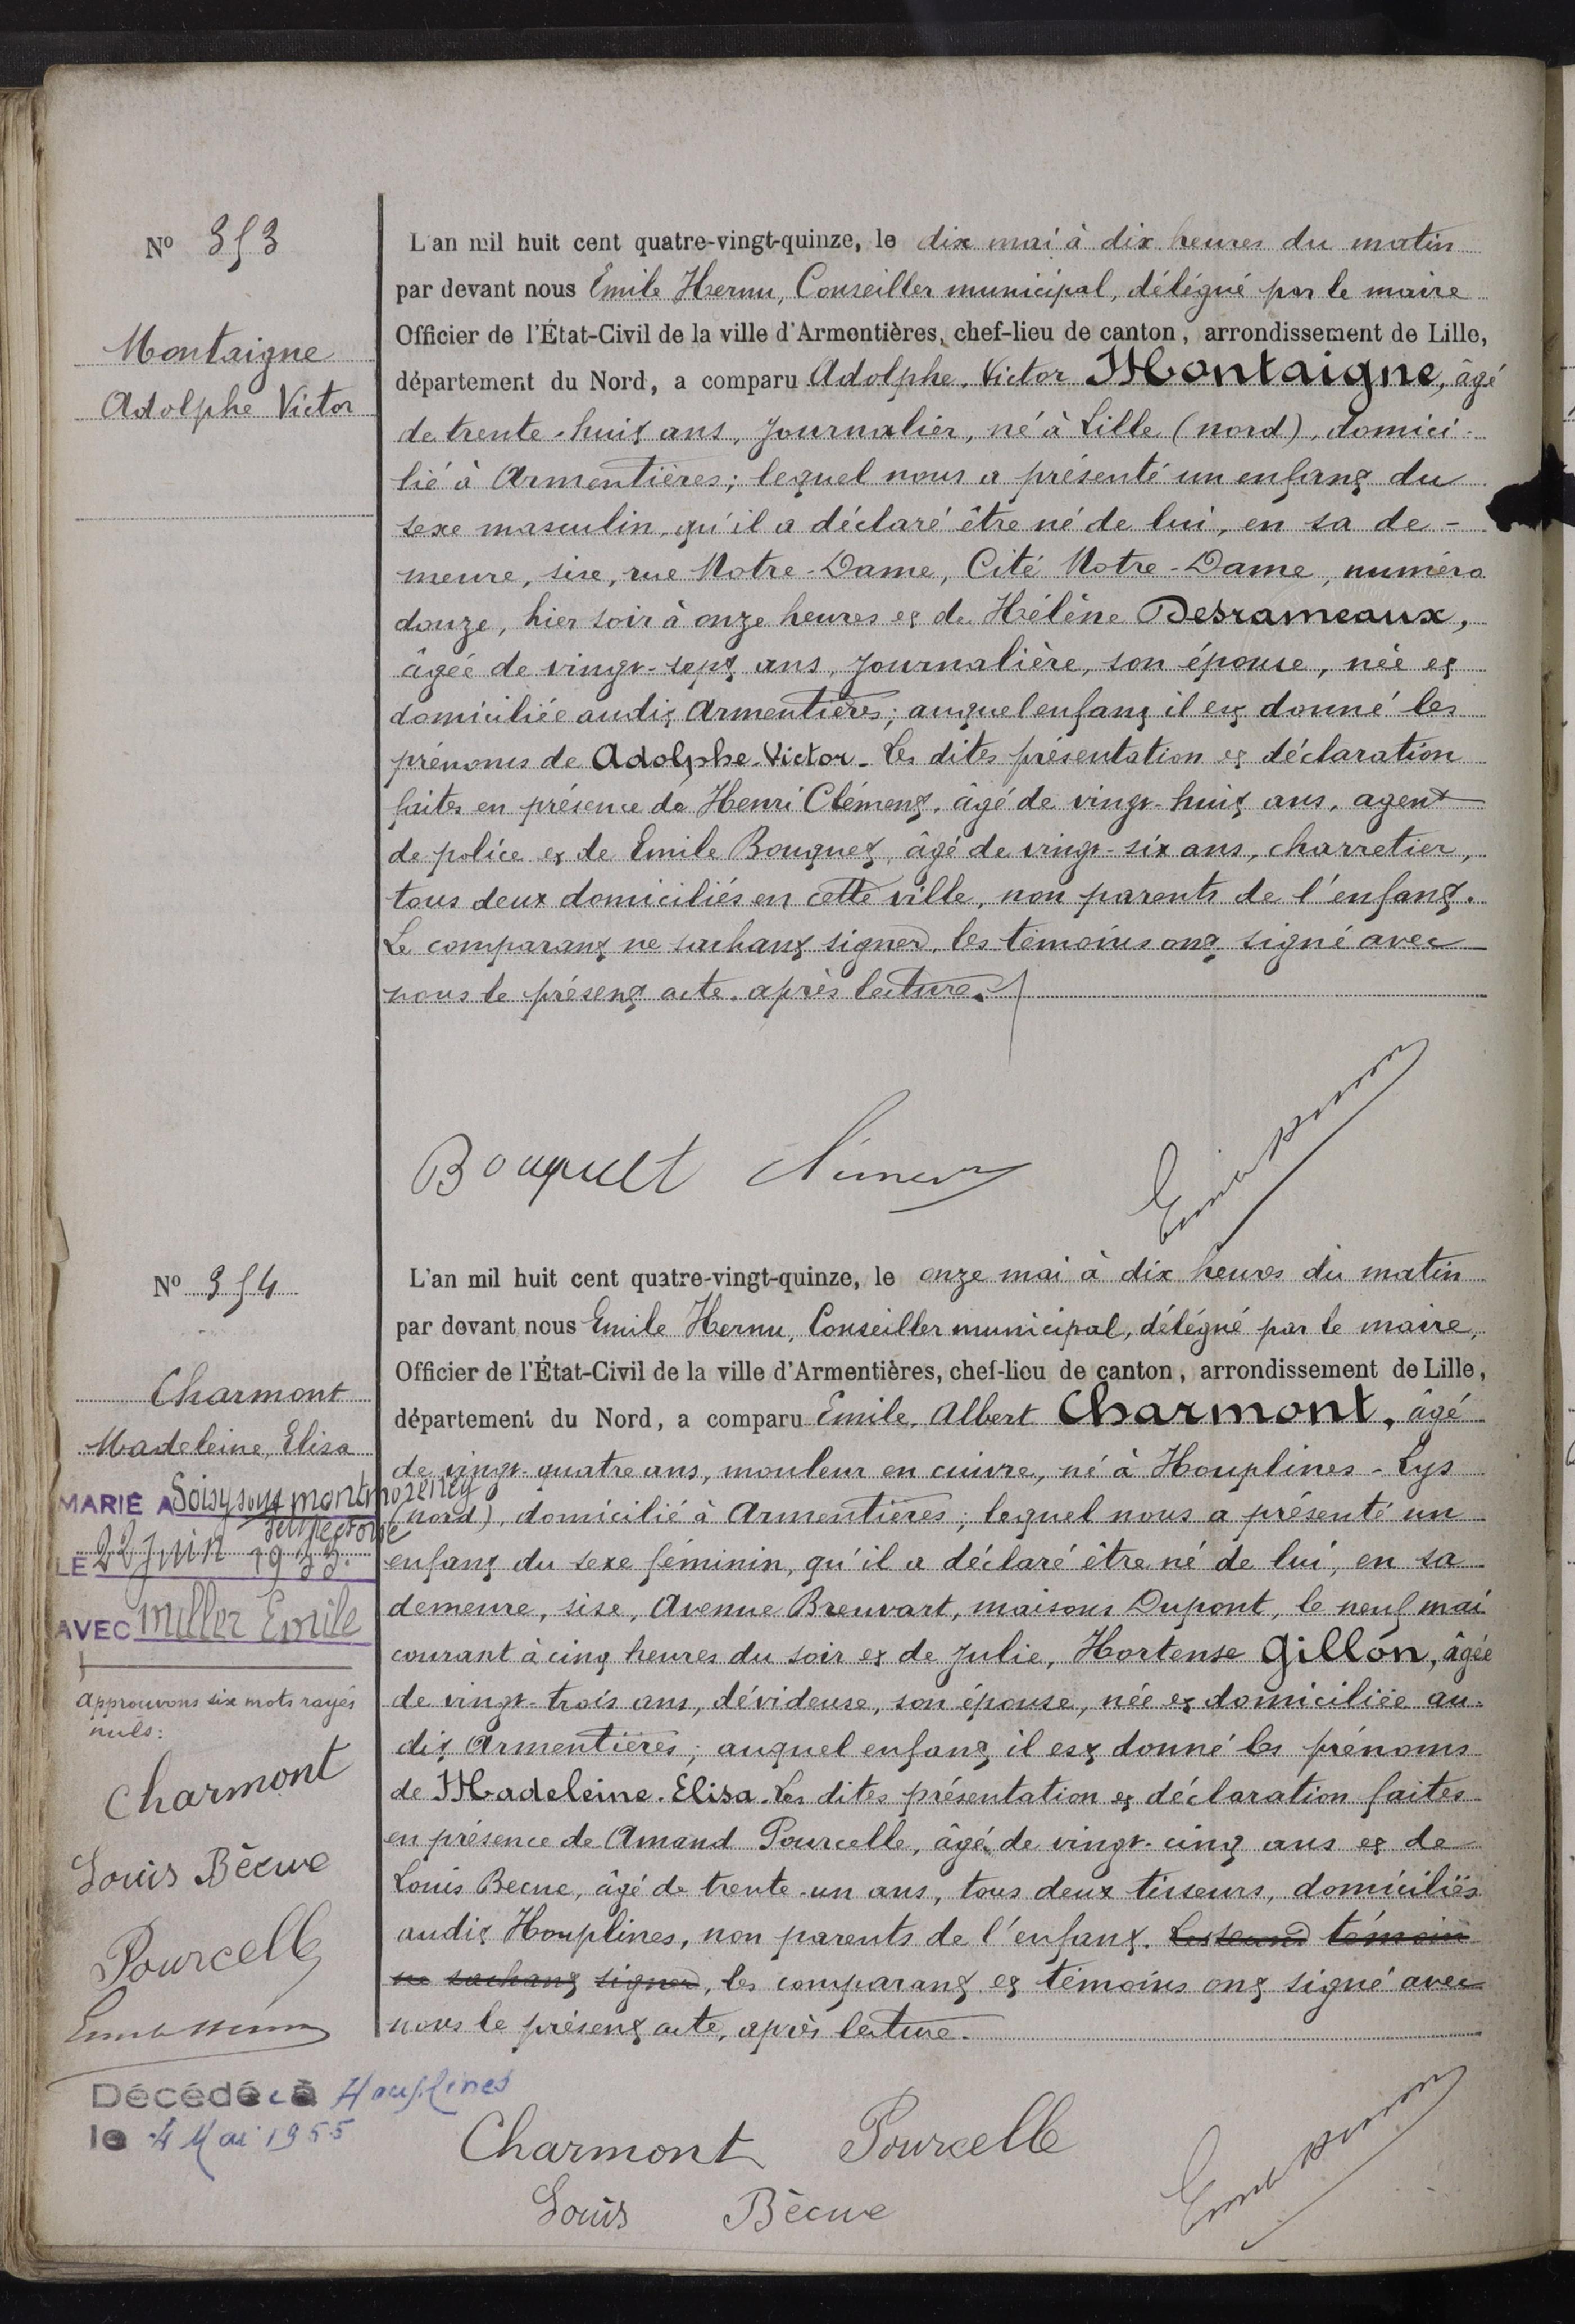 Nº 353
Montaigne
Adolphe Victor
L'an mil huit cent quatre-vingt-quinze, le dix mai à dix heures du matin
par devant nous Emile Hernu, Conseiller municipal, délégué par le maire
Officier de l'État-Civil de la ville d'Armentières, chef-lieu de canton, arrondissement de Lille,
département du Nord, a comparu Adolphe, Victor Montaigne, âgé
de trente-huit ans, journalier, né à Lille (nord), domici-
lié à Armentières; lequel nous a présenté un enfant du
sexe masculin, qu'il a déclaré être né de lui, en sa de-
meure, sise, rue Notre-Dame, Cité Notre-Dame, numéro
douze, hier soir à onze heures et de Hélène Desrameaux,
âgée de vingt-sept ans, journalière, son épouse, née et
domiciliée audit Armentières; auquel enfant il est donné les
prénoms de Adolphe-Victor. Les dites présentation et déclaration
faites en présence de Henri Clément, âgé de vingt-huit ans, agent
de police et de Emile Bouquet, âgé de vingt-six ans, charretier,
tous deux domiciliés en cette ville, non parents de l'enfant.
Le comparant ne sachant signer, les témoins ont signé avec
nous le présent acte, après lecture.
Bouquet Clément Emile Hernu
Nº 354
Charmont
Madeleine, Elisa
MARIÉ A Soisy sous montmorency
Seine et Oise
LE 22 Juin 1933.
AVEC Miller Emile
Approuvons six mots rayés
nuls:
Charmont
Louis Bècue
Pourcelle
Emile Hernu
Décédée à Houplines
le 4 Mai 1955
L'an mil huit cent quatre-vingt-quinze, le onze mai à dix heures du matin
par devant nous Emile Hernu, Conseiller municipal, délégué par le maire,
Officier de l'État-Civil de la ville d'Armentières, chef-lieu de canton, arrondissement de Lille,
département du Nord, a comparu Emile, Albert Charmont, âgé
de vingt-quatre ans, mouleur en cuivre, né à Houplines-Lys
(nord), domicilié à Armentières; lequel nous a présenté un
enfant du sexe féminin, qu'il a déclaré être né de lui, en sa
demeure, sise, Avenue Breuvart, maisons Dupont, le neuf mai
courant à cinq heures du soir et de Julie, Hortense Gillon, âgée
de vingt-trois ans, dévideuse, son épouse, née et domiciliée au-
dit Armentières; auquel enfant il est donné les prénoms
de Madeleine-Elisa. Les dites présentation et déclaration faites
en présence de Amand Pourcelle, âgé de vingt-cinq ans et de
Louis Becue, âgé de trente-un ans, tous deux tisseurs, domiciliés
audit Houplines, non parents de l'enfant. Le second témoin
ne sachant signer, les comparant et témoins ont signé avec
nous le présent acte, après lecture.
Charmont Pourcelle Emile Hernu
Louis Bècue